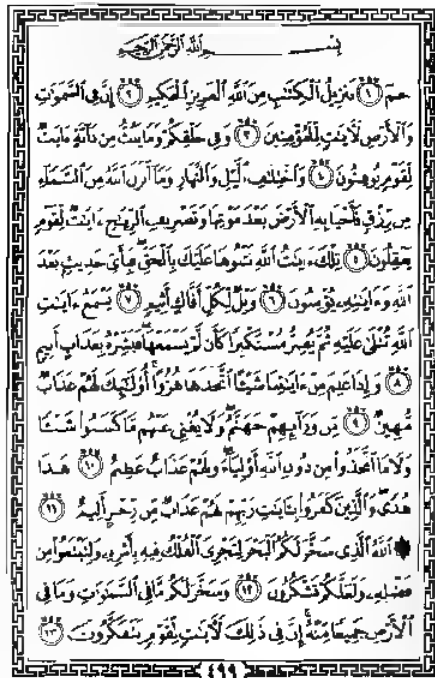 بِسْمِ اللَّهِ الرَّحْمَٰنِ الرَّحِيمِ
حمٓ ۝١ تَنزِيلُ الْكِتَٰبِ مِنَ اللَّهِ الْعَزِيزِ الْحَكِيمِ ۝٢ إِنَّ فِي السَّمَٰوَٰتِ
وَالْأَرْضِ لَءَايَٰتٍ لِّلْمُؤْمِنِينَ ۝٣ وَفِي خَلْقِكُمْ وَمَا يَبُثُّ مِن دَآبَّةٍ ءَايَٰتٌ
لِّقَوْمٍ يُوقِنُونَ ۝٤ وَاخْتِلَٰفِ الَّيْلِ وَالنَّهَارِ وَمَآ أَنزَلَ اللَّهُ مِنَ السَّمَآءِ
مِن رِّزْقٍ فَأَحْيَا بِهِ الْأَرْضَ بَعْدَ مَوْتِهَا وَتَصْرِيفِ الرِّيَٰحِ ءَايَٰتٌ لِّقَوْمٍ
يَعْقِلُونَ ۝٥ تِلْكَ ءَايَٰتُ اللَّهِ نَتْلُوهَا عَلَيْكَ بِالْحَقِّ ۖ فَبِأَيِّ حَدِيثٍۭ بَعْدَ
اللَّهِ وَءَايَٰتِهِۦ يُؤْمِنُونَ ۝٦ وَيْلٌ لِّكُلِّ أَفَّاكٍ أَثِيمٍ ۝٧ يَسْمَعُ ءَايَٰتِ
اللَّهِ تُتْلَىٰ عَلَيْهِ ثُمَّ يُصِرُّ مُسْتَكْبِرًا كَأَن لَّمْ يَسْمَعْهَا ۖ فَبَشِّرْهُ بِعَذَابٍ أَلِيمٍ
۝٨ وَإِذَا عَلِمَ مِنْ ءَايَٰتِنَا شَيْـًٔا اتَّخَذَهَا هُزُوًا ۚ أُو۟لَٰٓئِكَ لَهُمْ عَذَابٌ
مُّهِينٌ ۝٩ مِّن وَرَآئِهِمْ جَهَنَّمُ ۖ وَلَا يُغْنِي عَنْهُم مَّا كَسَبُوا۟ شَيْـًٔا
وَلَا مَا اتَّخَذُوا۟ مِن دُونِ اللَّهِ أَوْلِيَآءَ ۖ وَلَهُمْ عَذَابٌ عَظِيمٌ ۝١٠ هَٰذَا
هُدًى ۖ وَالَّذِينَ كَفَرُوا۟ بِـَٔايَٰتِ رَبِّهِمْ لَهُمْ عَذَابٌ مِّن رِّجْزٍ أَلِيمٌ ۝١١
۞ اللَّهُ الَّذِي سَخَّرَ لَكُمُ الْبَحْرَ لِتَجْرِيَ الْفُلْكُ فِيهِ بِأَمْرِهِۦ وَلِتَبْتَغُوا۟ مِن
فَضْلِهِۦ وَلَعَلَّكُمْ تَشْكُرُونَ ۝١٢ وَسَخَّرَ لَكُم مَّا فِي السَّمَٰوَٰتِ وَمَا فِي
الْأَرْضِ جَمِيعًا مِّنْهُ ۚ إِنَّ فِي ذَٰلِكَ لَءَايَٰتٍ لِّقَوْمٍ يَتَفَكَّرُونَ ۝١٣
٤٩٩